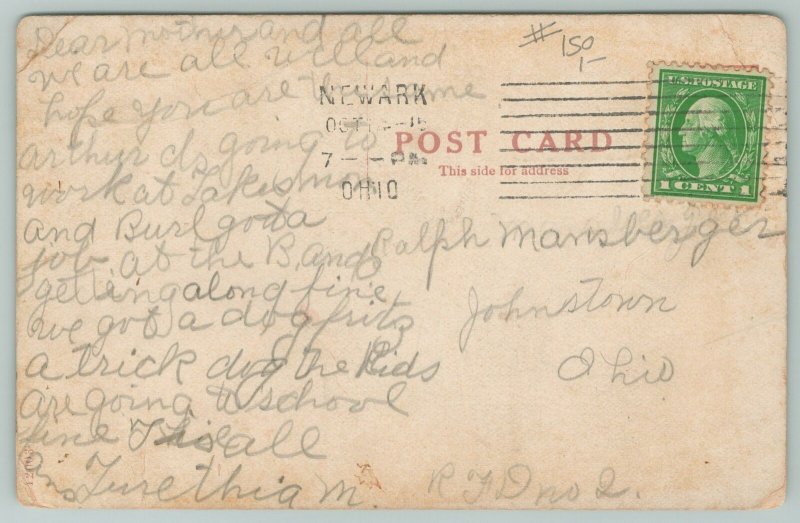 Dear Mother and all
we are all well and
hope you are the same
arthur is going to
work at
and Burl got a
job at the B. and O
getting along fine
we got a dog fritz
a trick dog the Kids
are going to school
fine This all
M
# 150
1-
NEWARK
OCT 15
7 - PM
OHIO
POST CARD
This side for address
U.S. POSTAGE
1 CENT 1
Ralph Mansberger
Johnstown
Ohio
R F D no 2.